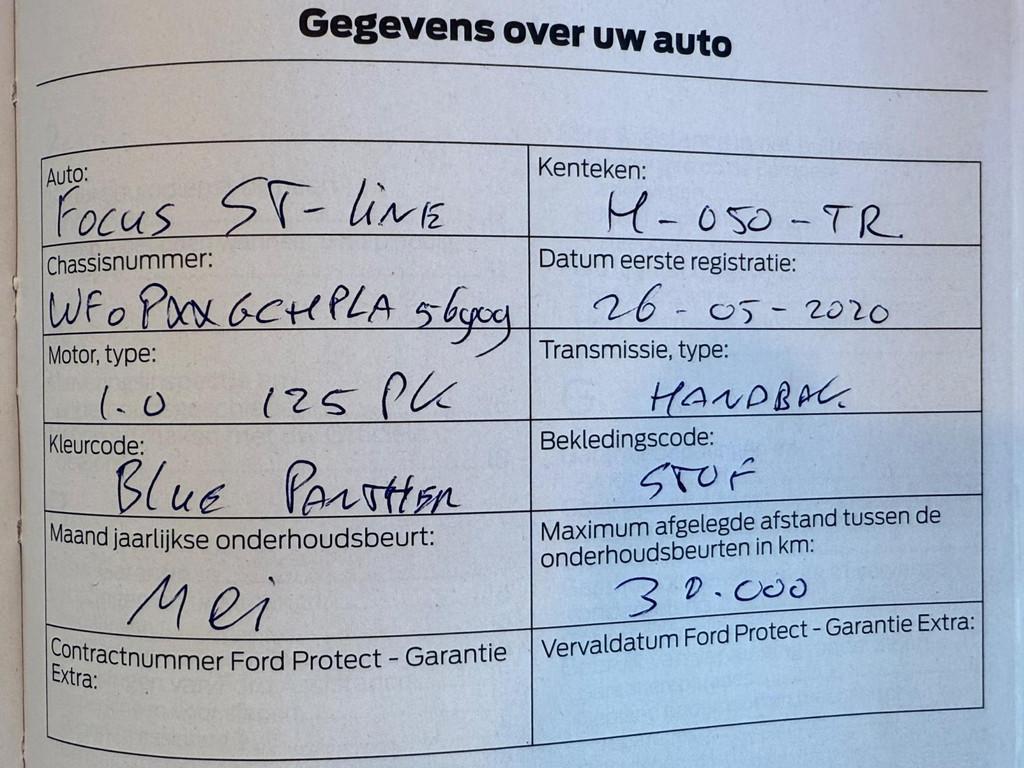 Gegevens over uw auto
Auto:
Focus ST-LINE
Kenteken:
H-050-TR
Chassisnummer:
WF0PXXGCHPLA56909
Datum eerste registratie:
26-05-2020
Motor, type:
1.0 125 PK
Transmissie, type:
HANDBAK
Kleurcode:
BLUE PANTHER
Bekledingscode:
STOF
Maand jaarlijkse onderhoudsbeurt:
Mei
Maximum afgelegde afstand tussen de
onderhoudsbeurten in km:
30.000
Contractnummer Ford Protect - Garantie
Extra:
Vervaldatum Ford Protect - Garantie Extra: